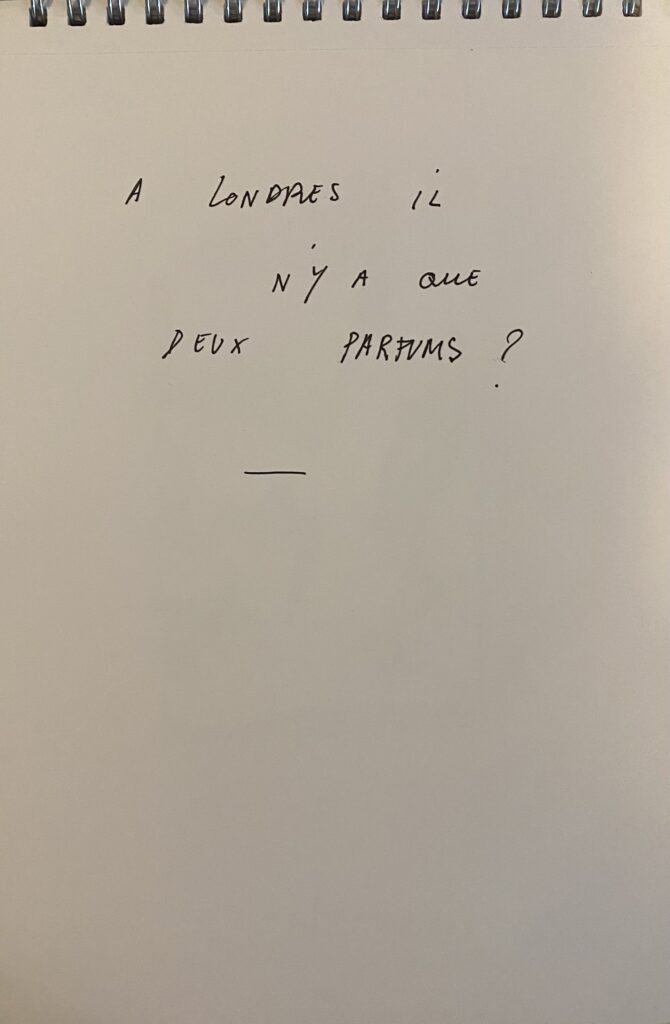 A LONDRES IL
N'Y A QUE
DEUX PARFUMS ?